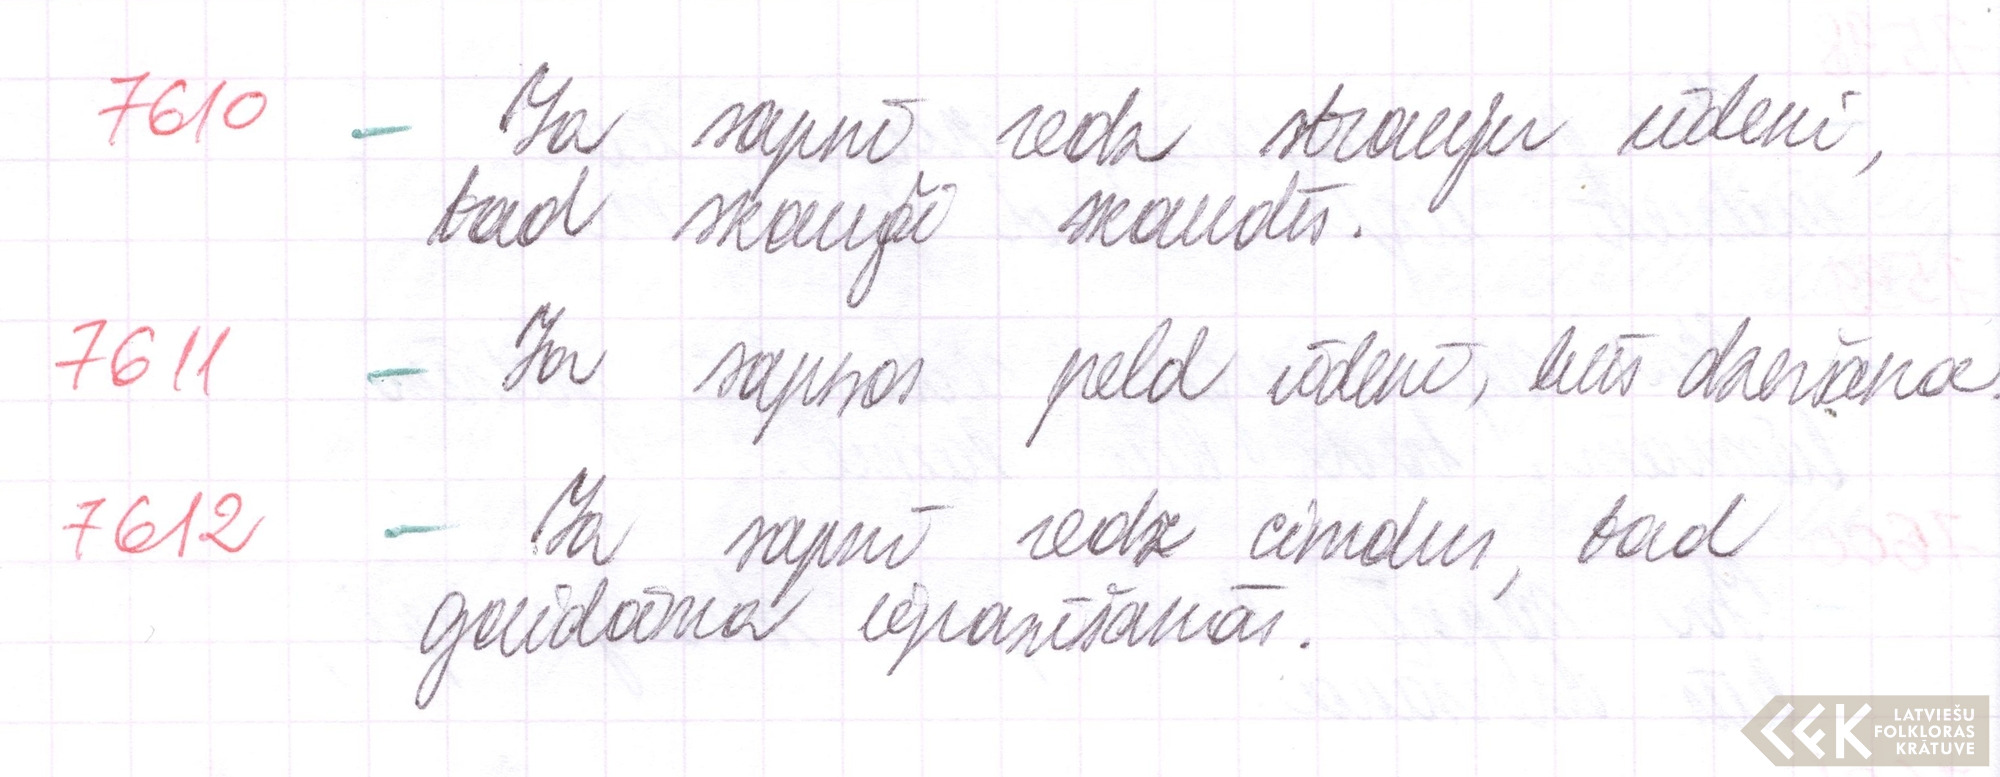 7610 - Ja sapnī redz strauju ūdeni,
tad skauģi skaudīs.
7611 - Ja sapņos peld ūdenī, būs dzeršana.
7612 - Ja sapnī redz cimdus, tad
gaidāma iepazīšanās.
LATVIEŠU
FOLKLORAS
KRĀTUVE